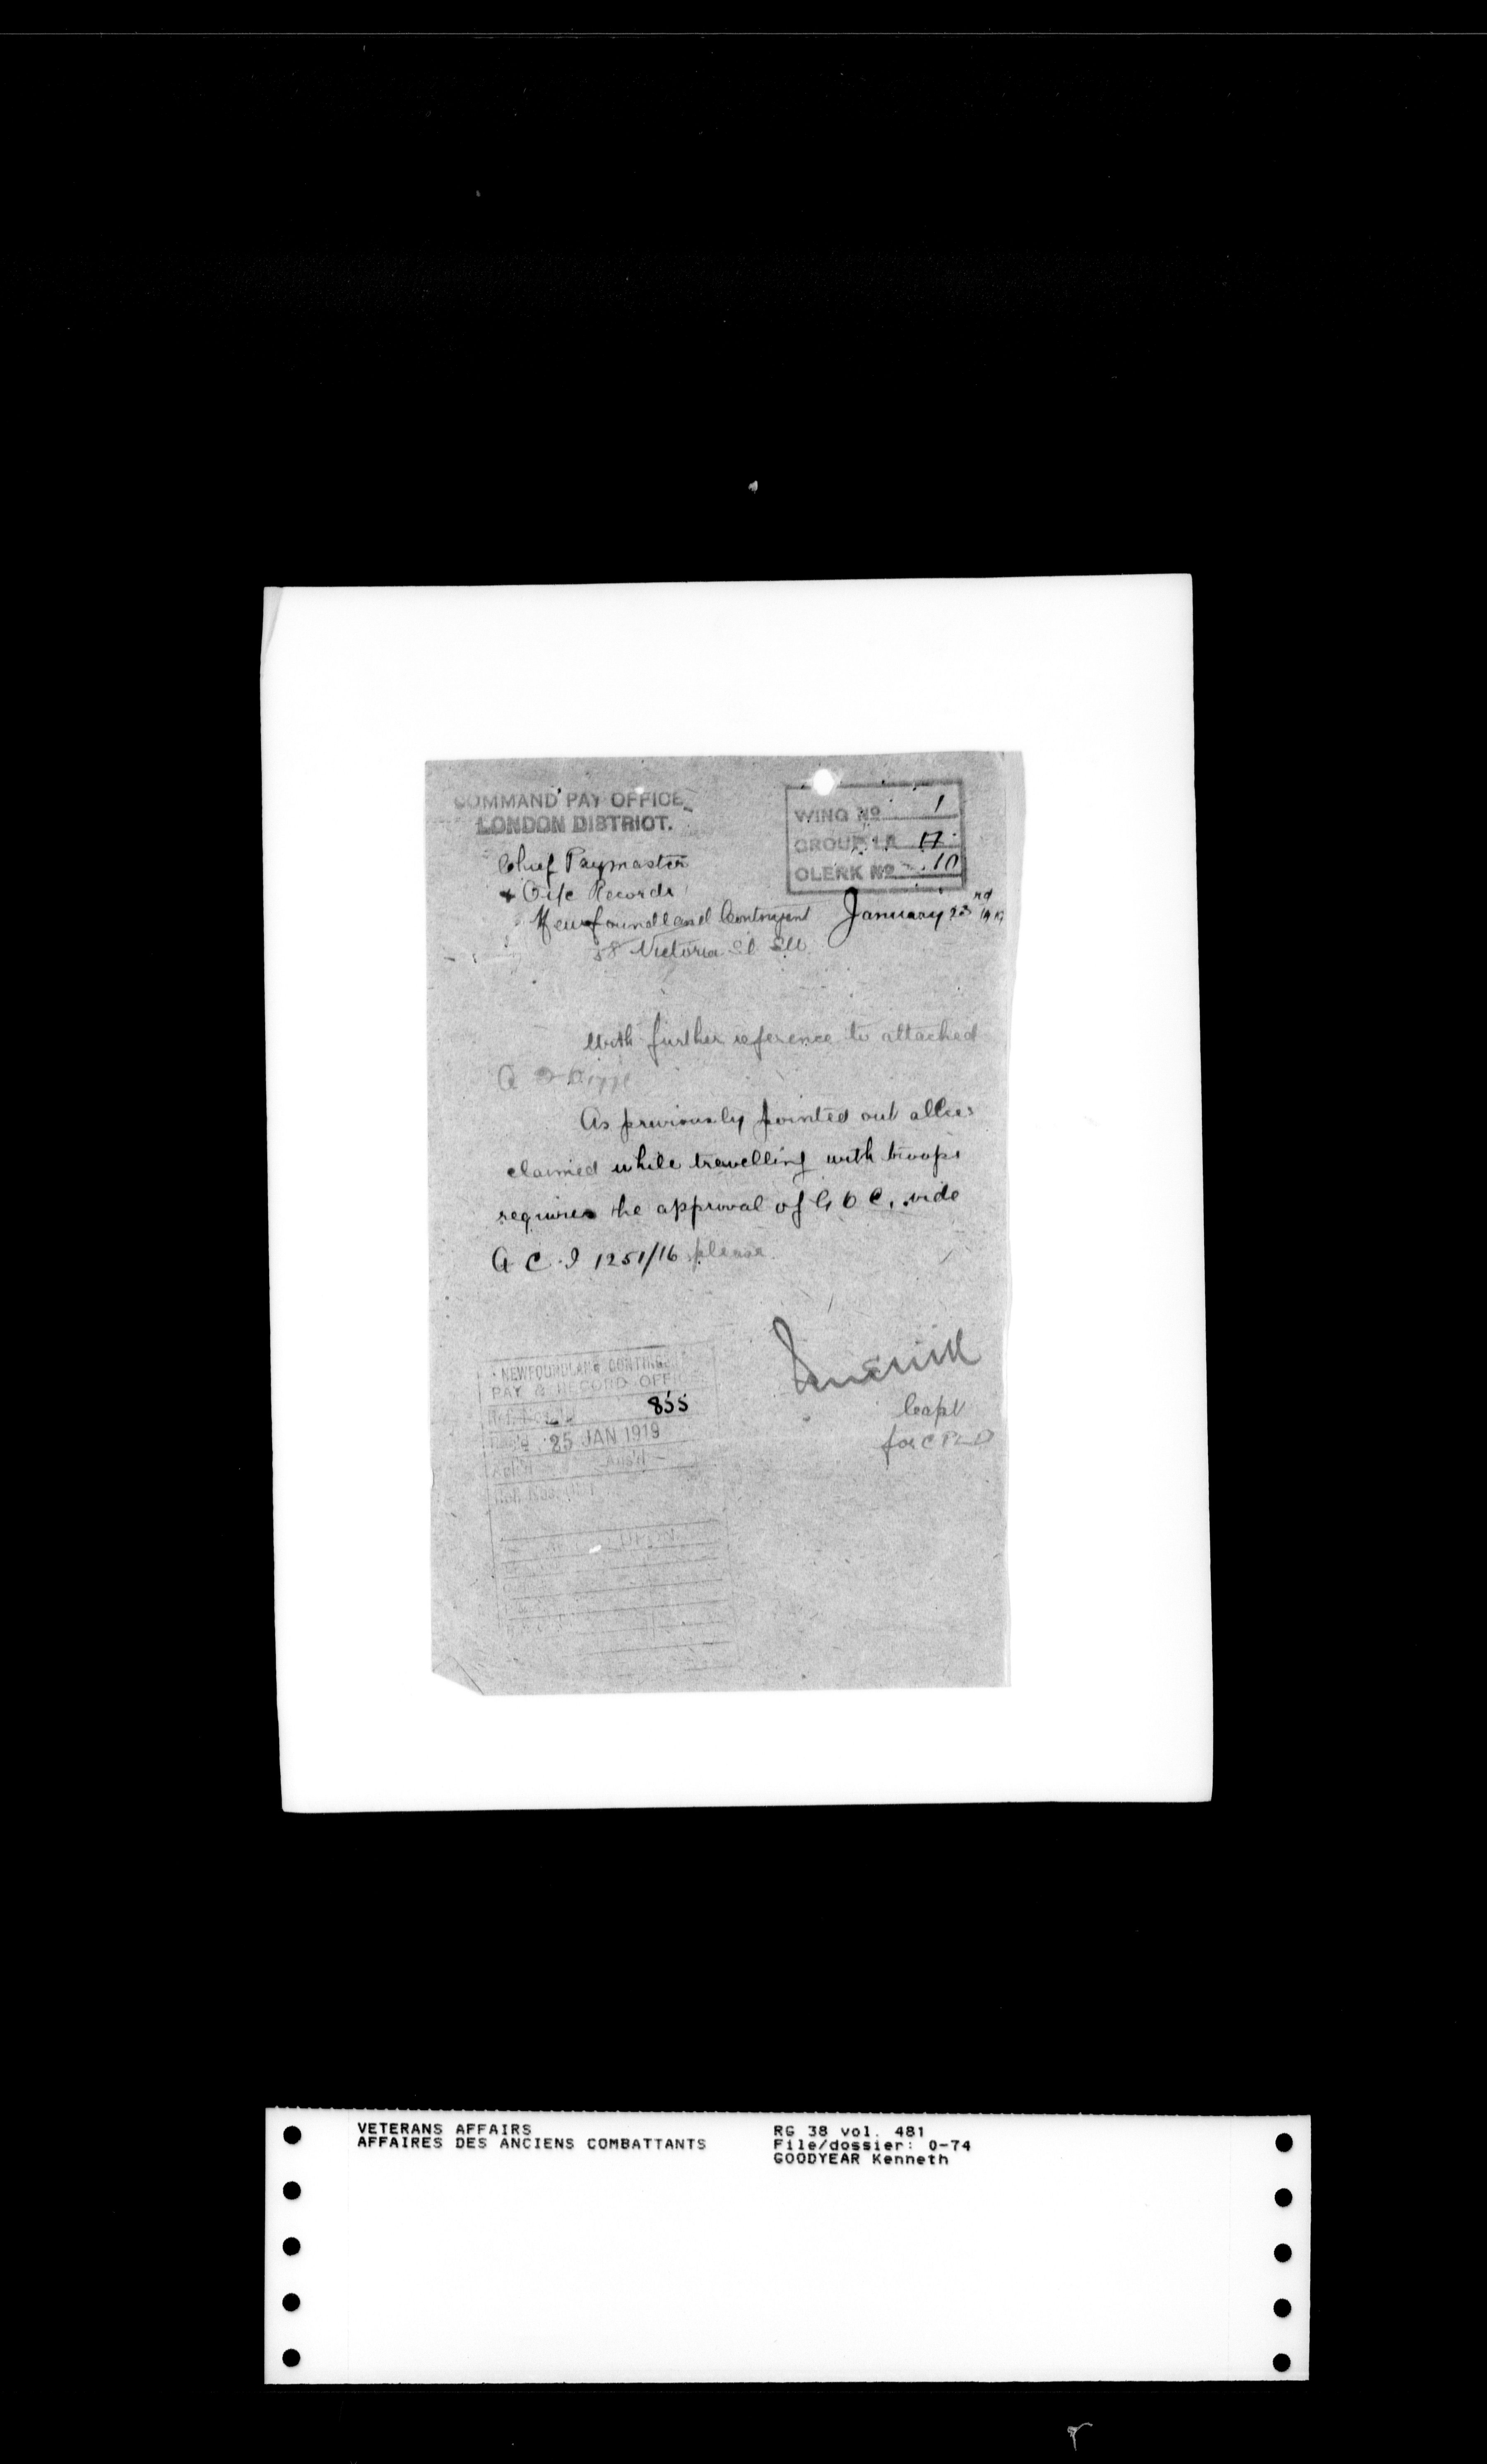 COMMAND PAY OFFICE
LONDON DISTRICT.
WING No 1
GROUP 17
CLERK No 10
Chief Paymaster
& Oi/c Records
Newfoundland Contingent
58 Victoria St SW.
January 23rd 1919
With further reference to attached
As previously pointed out allces
claimed while travelling with troops
requires the approval of G O C, vide
A C. I 1251/16 please.
Capt
for C P L D
NEWFOUNDLAND CONTINGENT
PAY & RECORD OFFICE
855
25 JAN 1919
Ans'd
UPON
VETERANS AFFAIRS
AFFAIRES DES ANCIENS COMBATTANTS
RG 38 vol. 481
File/dossier: 0-74
GOODYEAR Kenneth